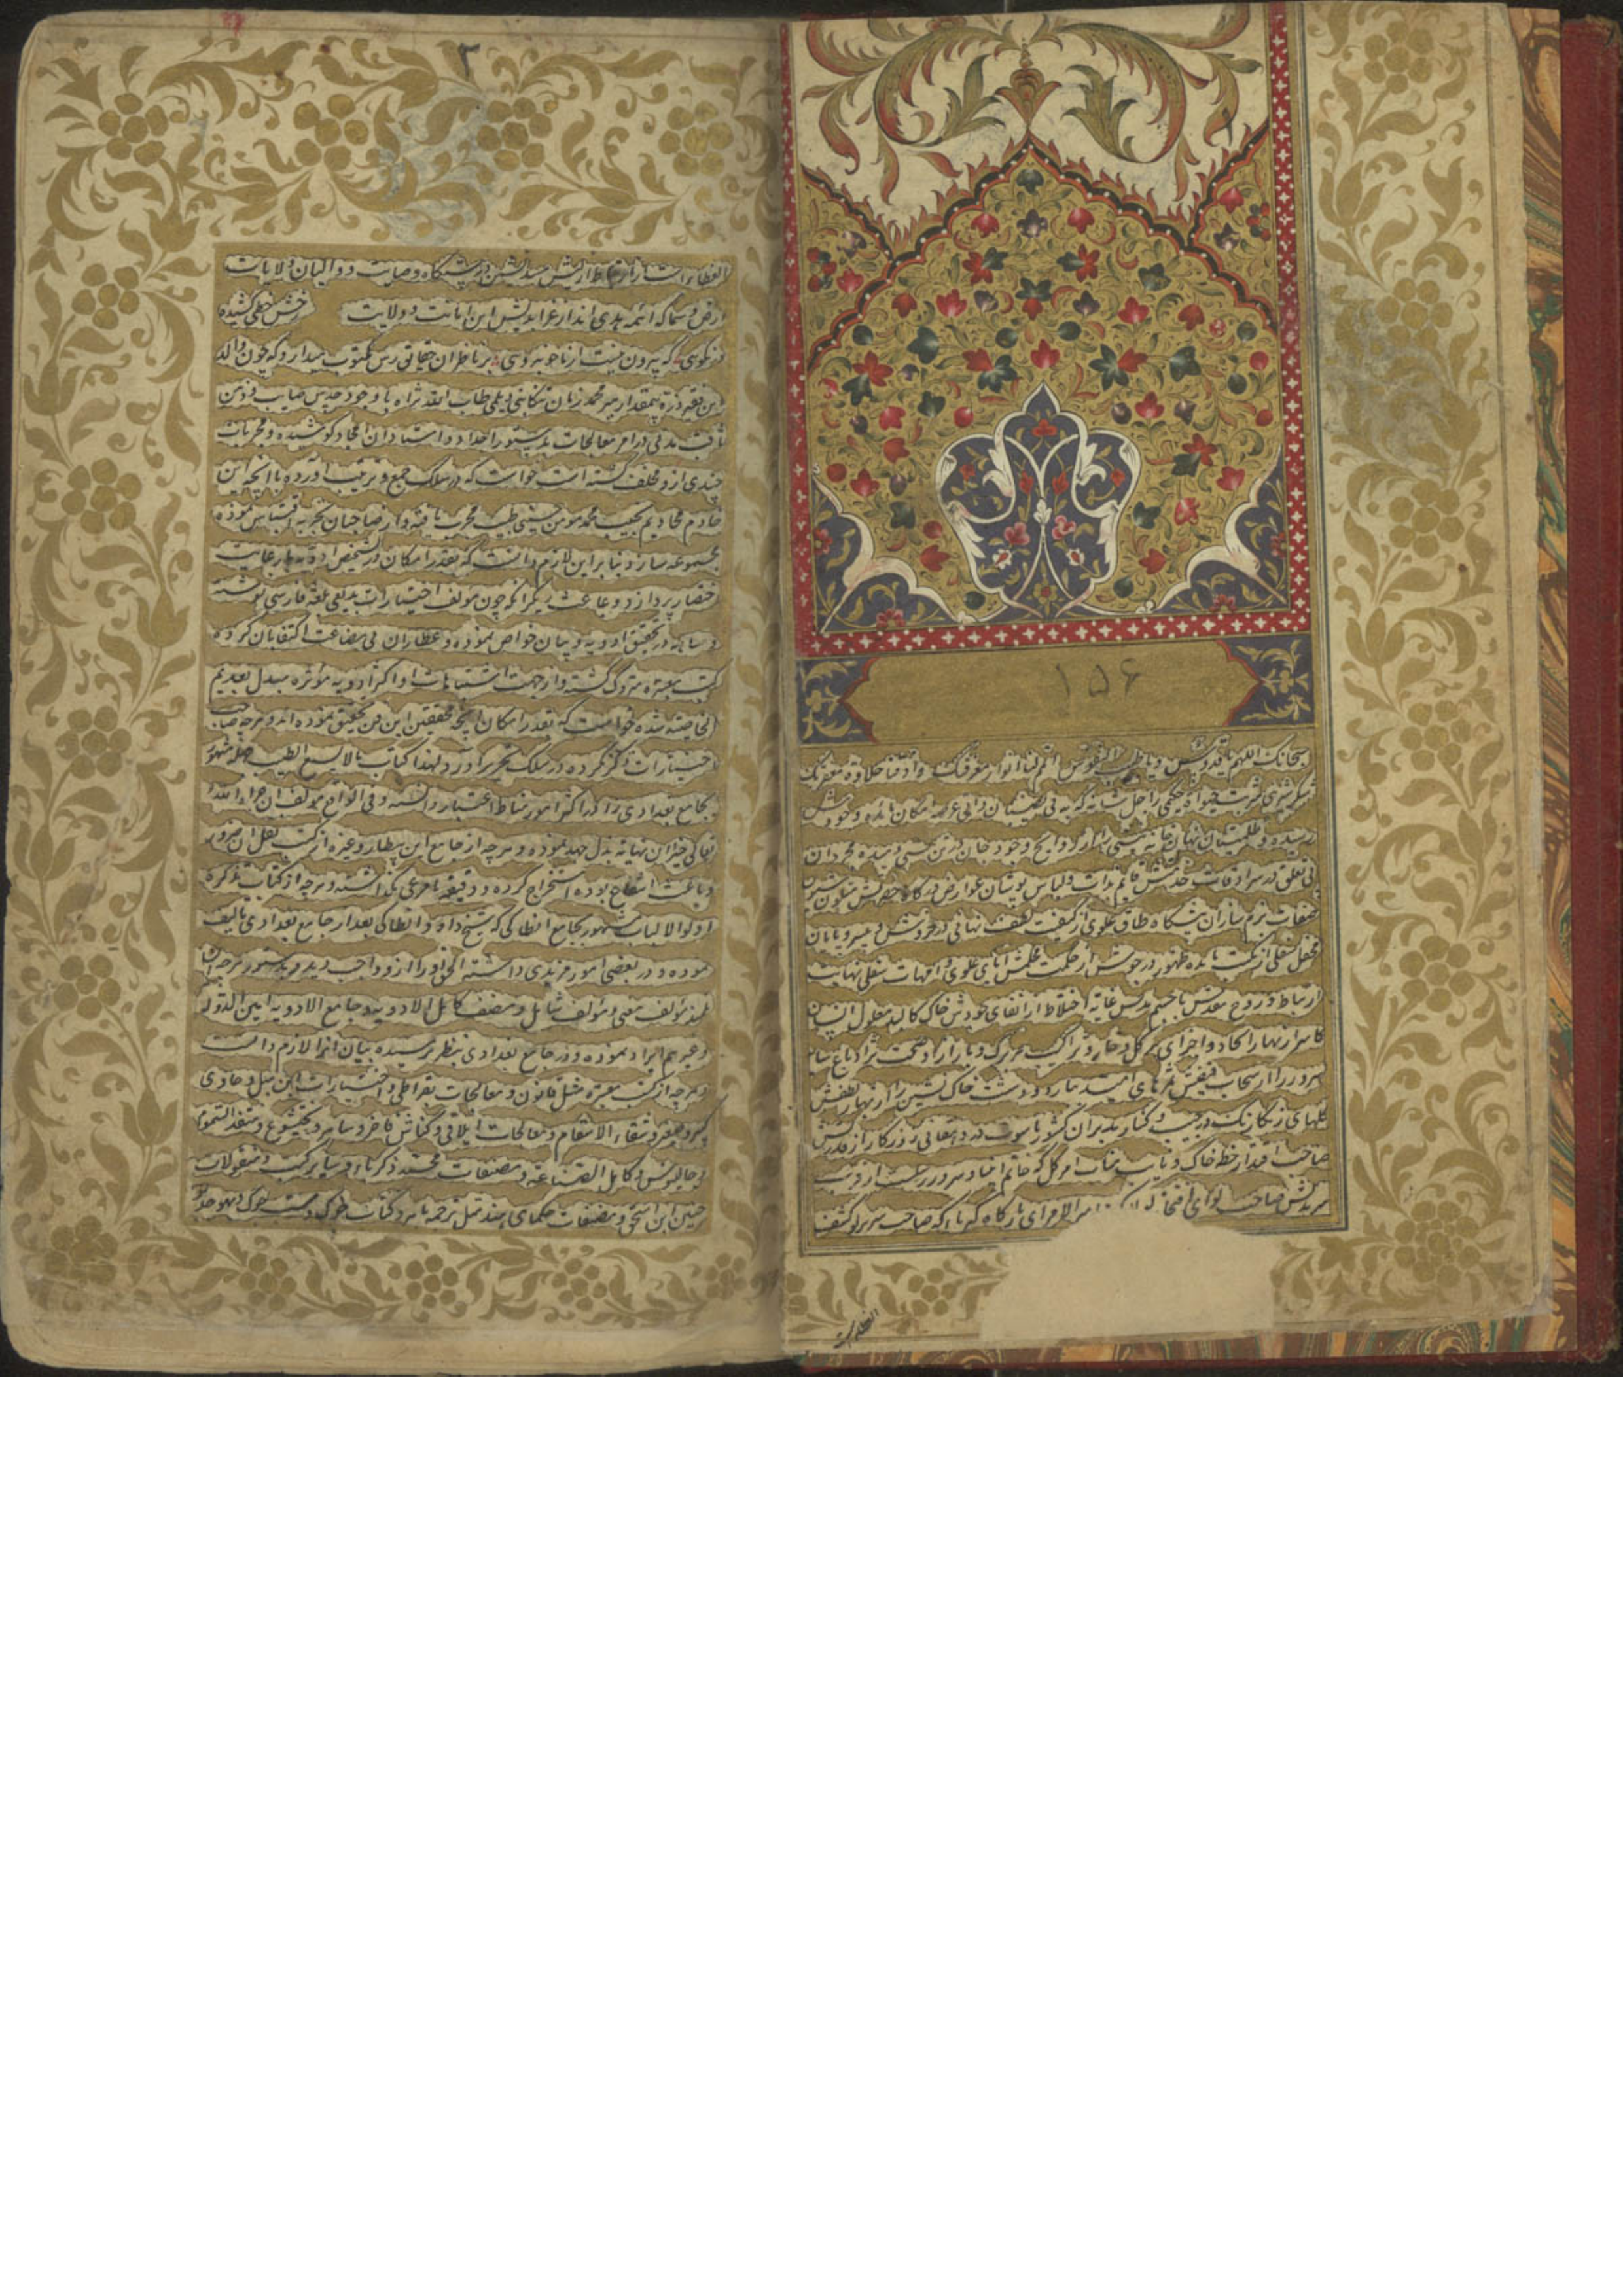 ۱۵۶
سبحانک اللهم یا قدوس و یا طبیب النفوس اتم لنا انوار معرفتک و اذقنا حلاوة مغفرتک
شکر شیرین شربت حکیمی را جل شانه که به بی نصیبان عرصه امکان مایده وجودش
رسیده و ظلمتیان نهان خانه نیستی را از روایح وجود جان در تن دمیده مجردان
بی تعلق در سرادقات خدمتش قایم بذات و لباس پوشان عوارض در کاه حضرتش متلون بتلون
صفات بزم سازان پیشگاه طاق علوی از کیفیت لطف نهانی در خروش و بی سروپایان
محفل سفلی از مایده ظهور در جوش از حکمت آبای علوی و امهات سفلی نهایت
ارتباط و روح مقدس با جسم غایة اختلاط از خاک کالبد معلول انسان
کامرانیها را اتحاد و اجزای هر گل و خار و تراکیب هر برک و بار را صحت باغ
سرور را از سحاب فیضش ثمرهای امید بار و دشت خاک نشین را از بهار لطفش
گلهای رنگارنگ در جیب و کنار مدبران کشور ناسوت در دهقانی روزگار از قدرتش
صاحب اقتدار خطه خاک و نایب هر گل که خاتم انبیا و سرور
سریدش صاحب لوای افتخار امیر الامرای بارگاه کبریا که صاحب سریر لو کشف
الغطاء
۲
الغطاء است پیشگاه وصایت و والیان ولایات
ارض و سما که ائمه هدی اند این امانت و ولایت رخش خطی کشیده
در نکویی که بیرون نیست از ما خوبرویی بر ناظران حقایق رس مکتوب میدارد که چون والد
این فقیر ذره بیمقدار میر محمد زمان تنکابنی دیلمی طاب الله ثراه با وجود حدس صایب و ذهن
ثاقب مدتی در امر معالجات بدستور اجداد و استادان امجاد کوشیده و مجربات
چندی از و مخلف گشته است خواست که در سلک جمع و ترتیب آورده با آنچه این
خادم محمد مومن حسینی طبیب مجرب یافته و از صاحبان تجربه اقتباس نموده
مجموعه سازد بنا بر این لازم دانست که بقدر امکان در تشخیص ادویه با رعایت
اختصار پردازد و باعث دیگر آنکه چون مولف اختیارات بدیعی بلغة فارسی نوشته
و مساهله در تحقیق ادویه و بیان خواص نموده و عطاران بی بضاعت اکتفا بان کرده
کتب معتبره متروک گشته و از جهت اشتباهات او اکثر ادویه مؤثره مبدل بعدیم
الخاصیه شده خواست که بقدر امکان آنچه محققین این فن تحقیق نموده اند و هر چه صاحب
اختیارات ذکر نکرده در سلک تحریر در آورد لهذا کتاب مالایسع الطبیب جهله مشهور
بجامع بغدادی را در اکثر امور مناط اعتبار دانسته و فی الواقع مولف آن جزاه الله
تعالی خیرا نهایة بذل جهد نموده و هر چه از جامع ابن بیطار و غیره از کتب نقل آن ضرور
و باعث انتفاع بوده استخراج کرده و دقیقه نامرعی نگذاشته و هر چه از کتاب تذکره
اولوالالباب مشهور بجامع انطاکی که شیخ داود انطاکی بعد از جامع بغدادی تالیف
نموده و در بعضی امور مزیدی داشته الحاق او را ازو واجب دید و بدستور هر چه از آن
مؤلف مغنی و مؤلف شامل و مصنف کامل الادویه و جامع الادویه امین الدوله
و غیرهم ایراد نموده و در جامع بغدادی بنظر نرسیده بیان آنرا لازم دانست
و هر چه از کتب معتبره مثل قانون و معالجات بقراطی و اختیارات ابن هبل و حاوی
کبیر و صغیر و شفاء الاسقام و معالجات ایلاقی و کناش فاخر و ساهر و بختیشوع و منقذ السموم
و جالینوس و کامل الصناعه و مصنفات محمد زکریا و سایر کتب و منقولات
حنین ابن اسحق و مصنفات حکمای هند مثل ترجمه